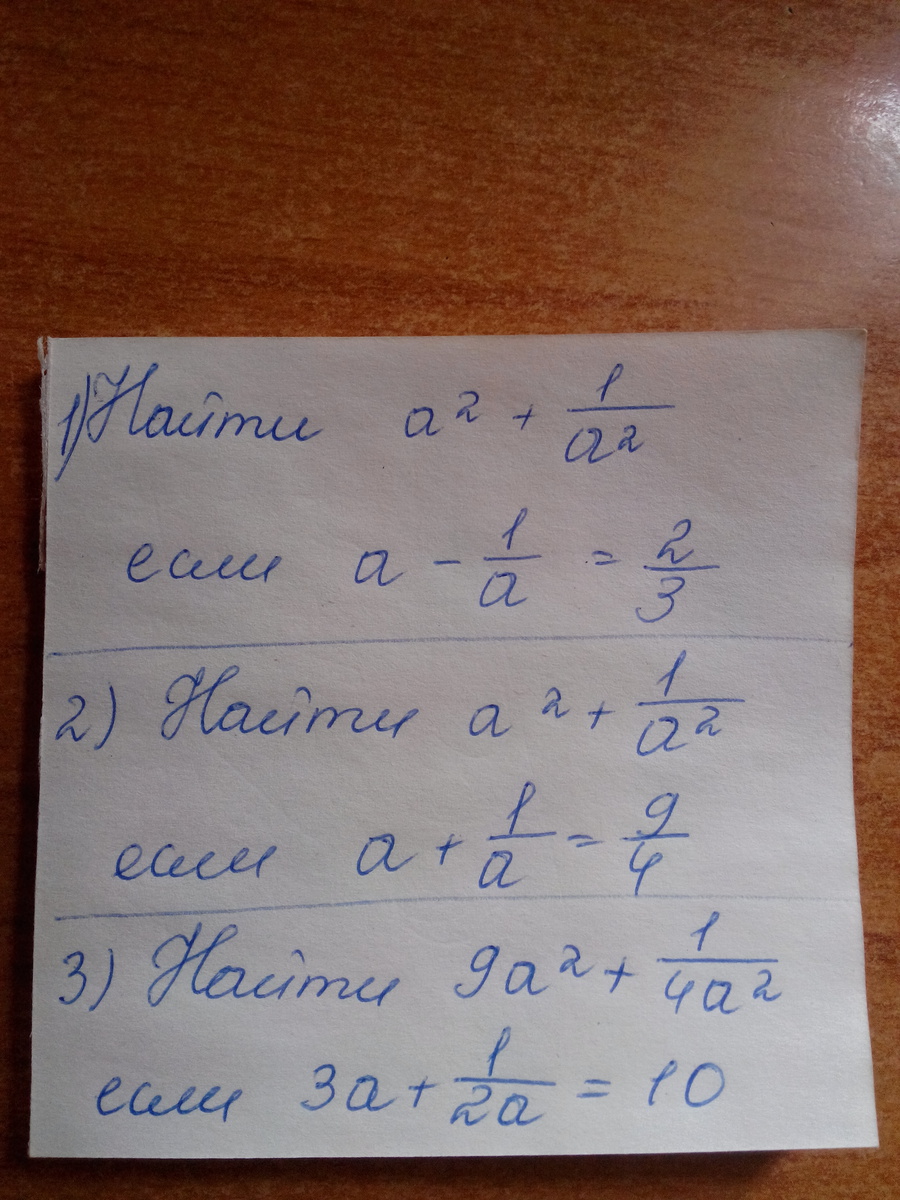 1) Найти a² + 1/a²
если a - 1/a = 2/3
2) Найти a² + 1/a²
если a + 1/a = 9/4
3) Найти 9a² + 1/4a²
если 3a + 1/2a = 10